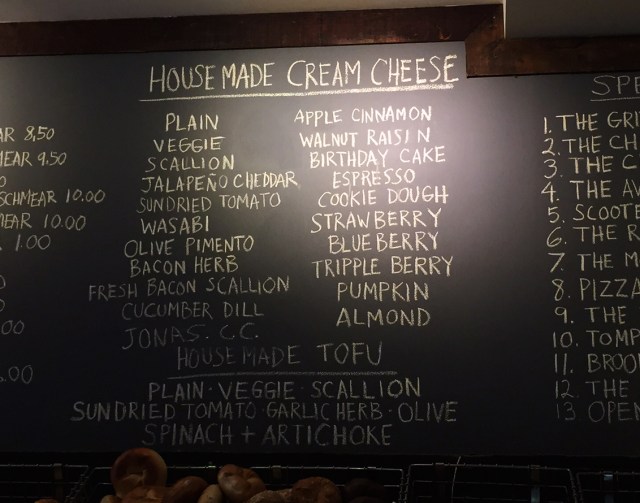 HOUSEMADE CREAM CHEESE
PLAIN
VEGGIE
SCALLION
JALAPEÑO CHEDDAR
SUNDRIED TOMATO
WASABI
OLIVE PIMENTO
BACON HERB
FRESH BACON SCALLION
CUCUMBER DILL
JONAS. C.C.
APPLE CINNAMON
WALNUT RAISIN
BIRTHDAY CAKE
ESPRESSO
COOKIE DOUGH
STRAWBERRY
BLUEBERRY
TRIPPLE BERRY
PUMPKIN
ALMOND
HOUSEMADE TOFU
PLAIN · VEGGIE · SCALLION
SUNDRIED TOMATO · GARLIC HERB · OLIVE
SPINACH + ARTICHOKE
AR 8,50
MEAR 9.50
SCHMEAR 10.00
MEAR 10.00
1.00
.00
5.00
SPE
1. THE GRI
2. THE CH
3. THE C
4. THE AV
5. SCOOTE
6. THE R
7. THE M
8. PIZZA
9. THE
10. TOMP
11. BROO
12. THE
13. OPEN